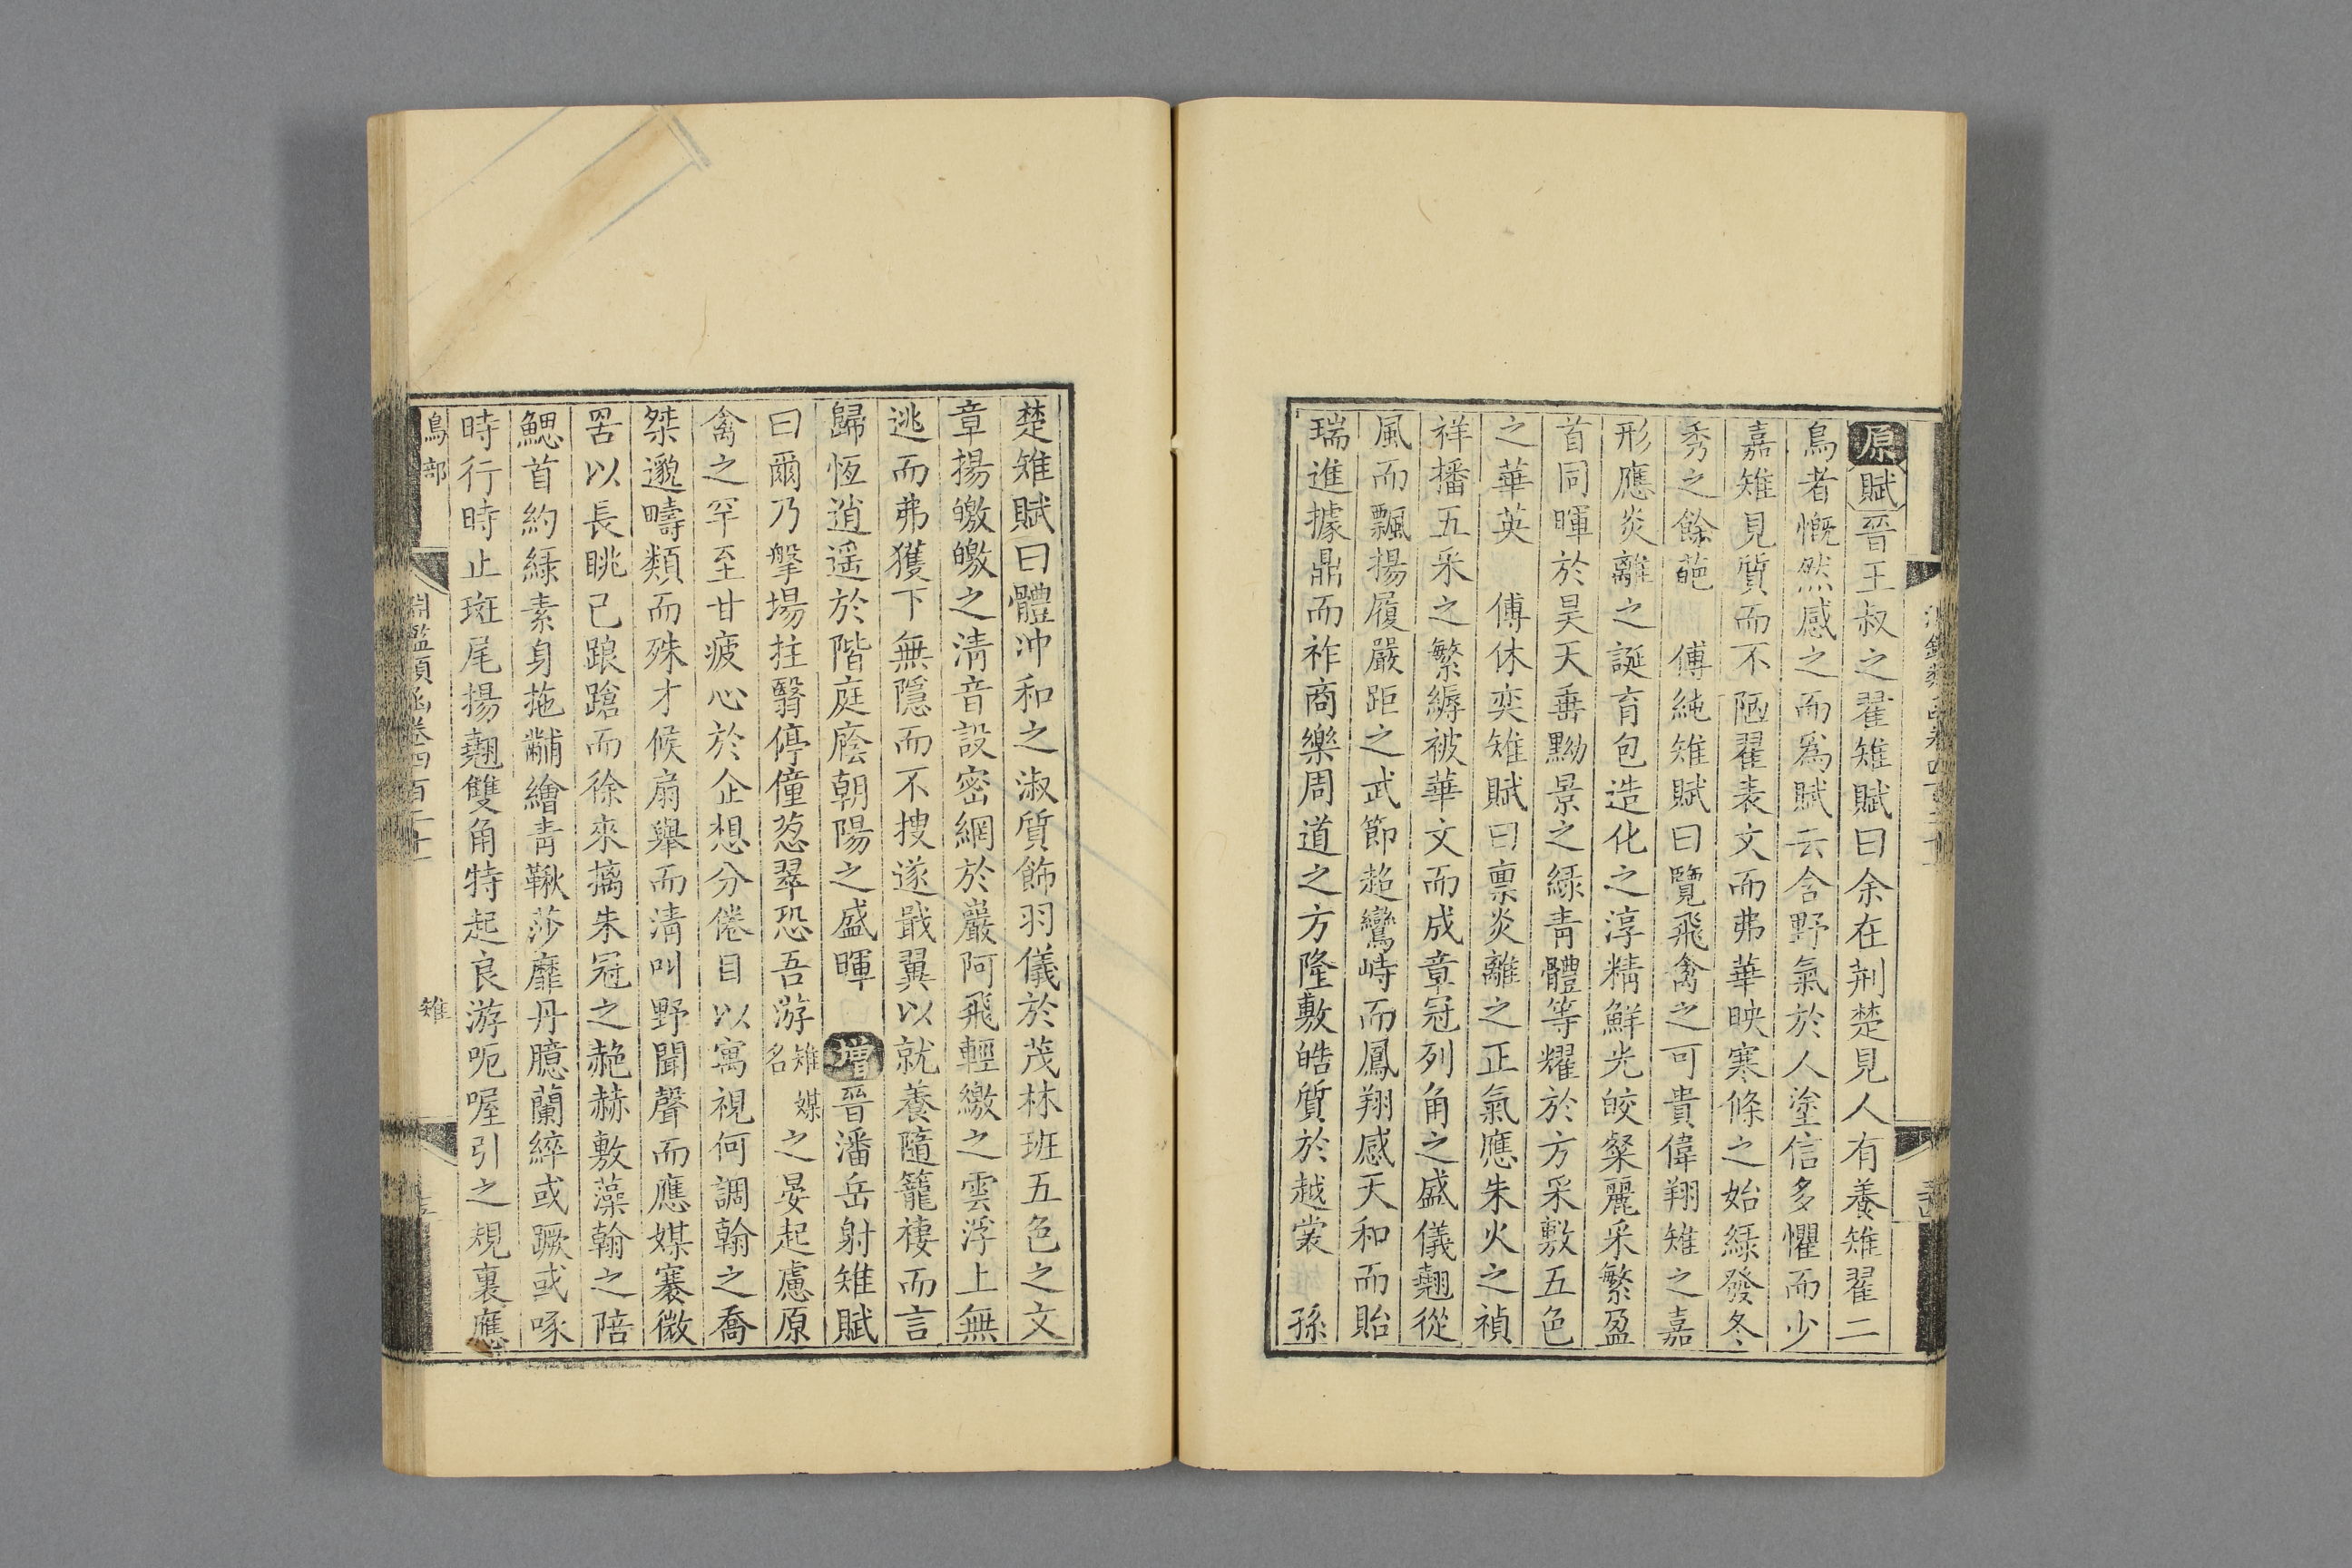 原賦晉王叔之翟雉賦曰余在荆楚見人有養雉翟二
鳥者慨然感之而爲賦云含野氣於人塗信多懼而少
嘉雉見質而不陋翟表文而弗華映寒條之始綠發冬
秀之餘葩 傅純雉賦曰覽飛禽之可貴偉翔雉之嘉
形應炎離之誕育包造化之淳精鮮光皎粲麗采繁盈
首同暉於昊天垂黝景之綠青體等耀於方采敷五色
之華英 傅休奕雉賦曰禀炎離之正氣應朱火之禎
祥播五采之繁縟被華文而成章冠列角之盛儀翹從
風而飄揚履嚴距之武節超鸞峙而鳳翔感天和而貽
瑞進據鼎而祚商樂周道之方隆敷皓質於越裳 孫
楚雉賦曰體冲和之淑質飾羽儀於茂林班五色之文
章揚皦皦之清音設密網於巖阿飛輕繳之雲浮上無
逃而弗獲下無隱而不搜遂戢翼以就養隨籠棲而言
歸恆逍遥於階庭廕朝陽之盛暉 增晉潘岳射雉賦
曰爾乃擎場拄翳停僮葱翠恐吾游雉媒名之晏起慮原
禽之罕至甘疲心於企想分倦目以寓視何調翰之喬
桀邈疇類而殊才候扇舉而清叫野聞聲而應媒褰微
罟以長眺已踉蹌而徐來摛朱冠之赩赫敷藻翰之陪
鰓首約綠素身拖黼繪青鞦莎靡丹臆蘭綷或蹶或啄
時行時止斑尾揚翹雙角特起良游呃喔引之規裏應
鳥部
淵鑑類函卷四百二十
雉